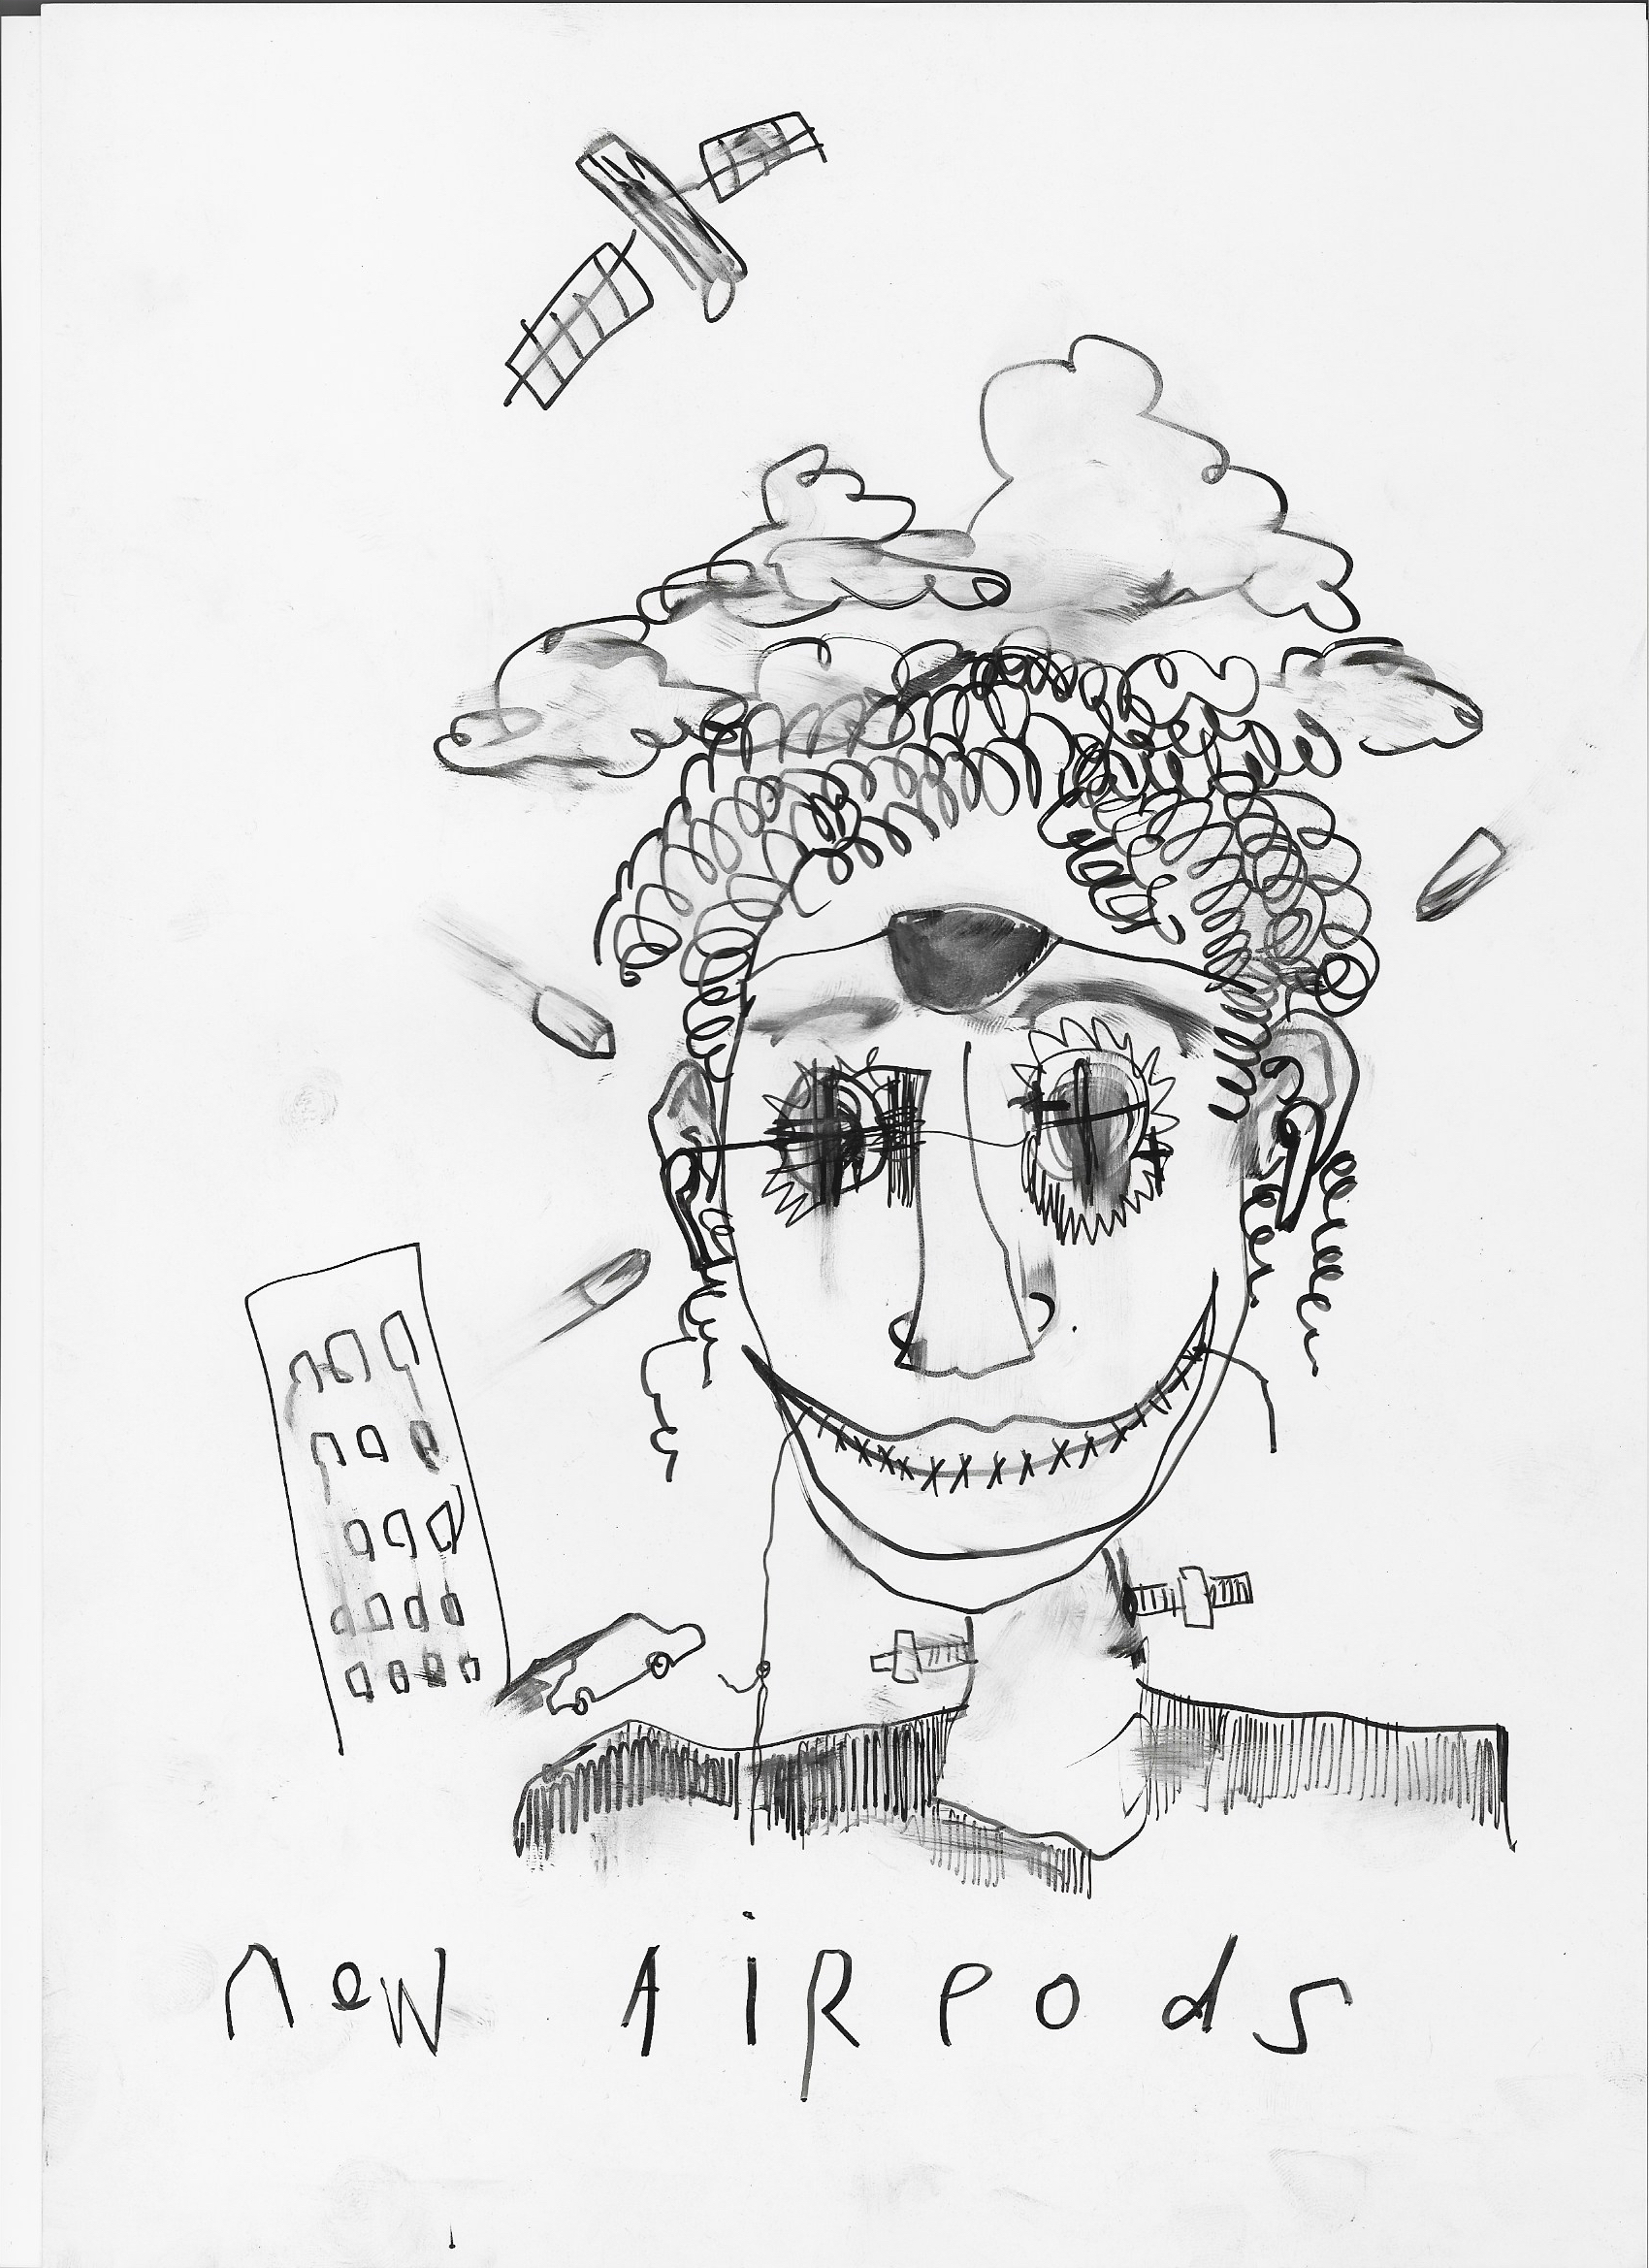 new AiRPods